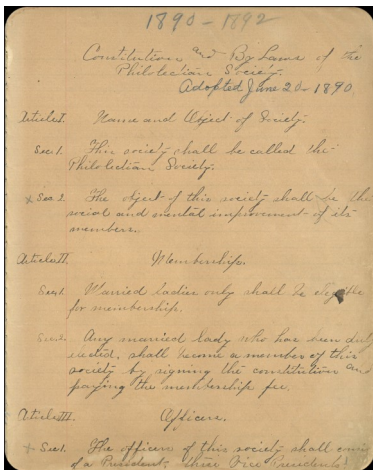 1890-1892
Constitution and By Laws of the
Philolectian Society.
Adopted June 20- 1890
Article I. Name and Object of Society.
Sec 1. This society shall be called the
Philolectian Society.
x Sec 2 The object of this society shall be the
social and mental improvement of its
members.
Article II. Membership.
Sec 1. Married ladies only shall be eligible
for membership.
Sec 2. Any married lady who has been duly
elected, shall become a member of this
society by signing the constitution and
paying the membership fee.
Article III. Officers.
x Sec 1. The officers of this society shall
of a President, three Vice Presidents